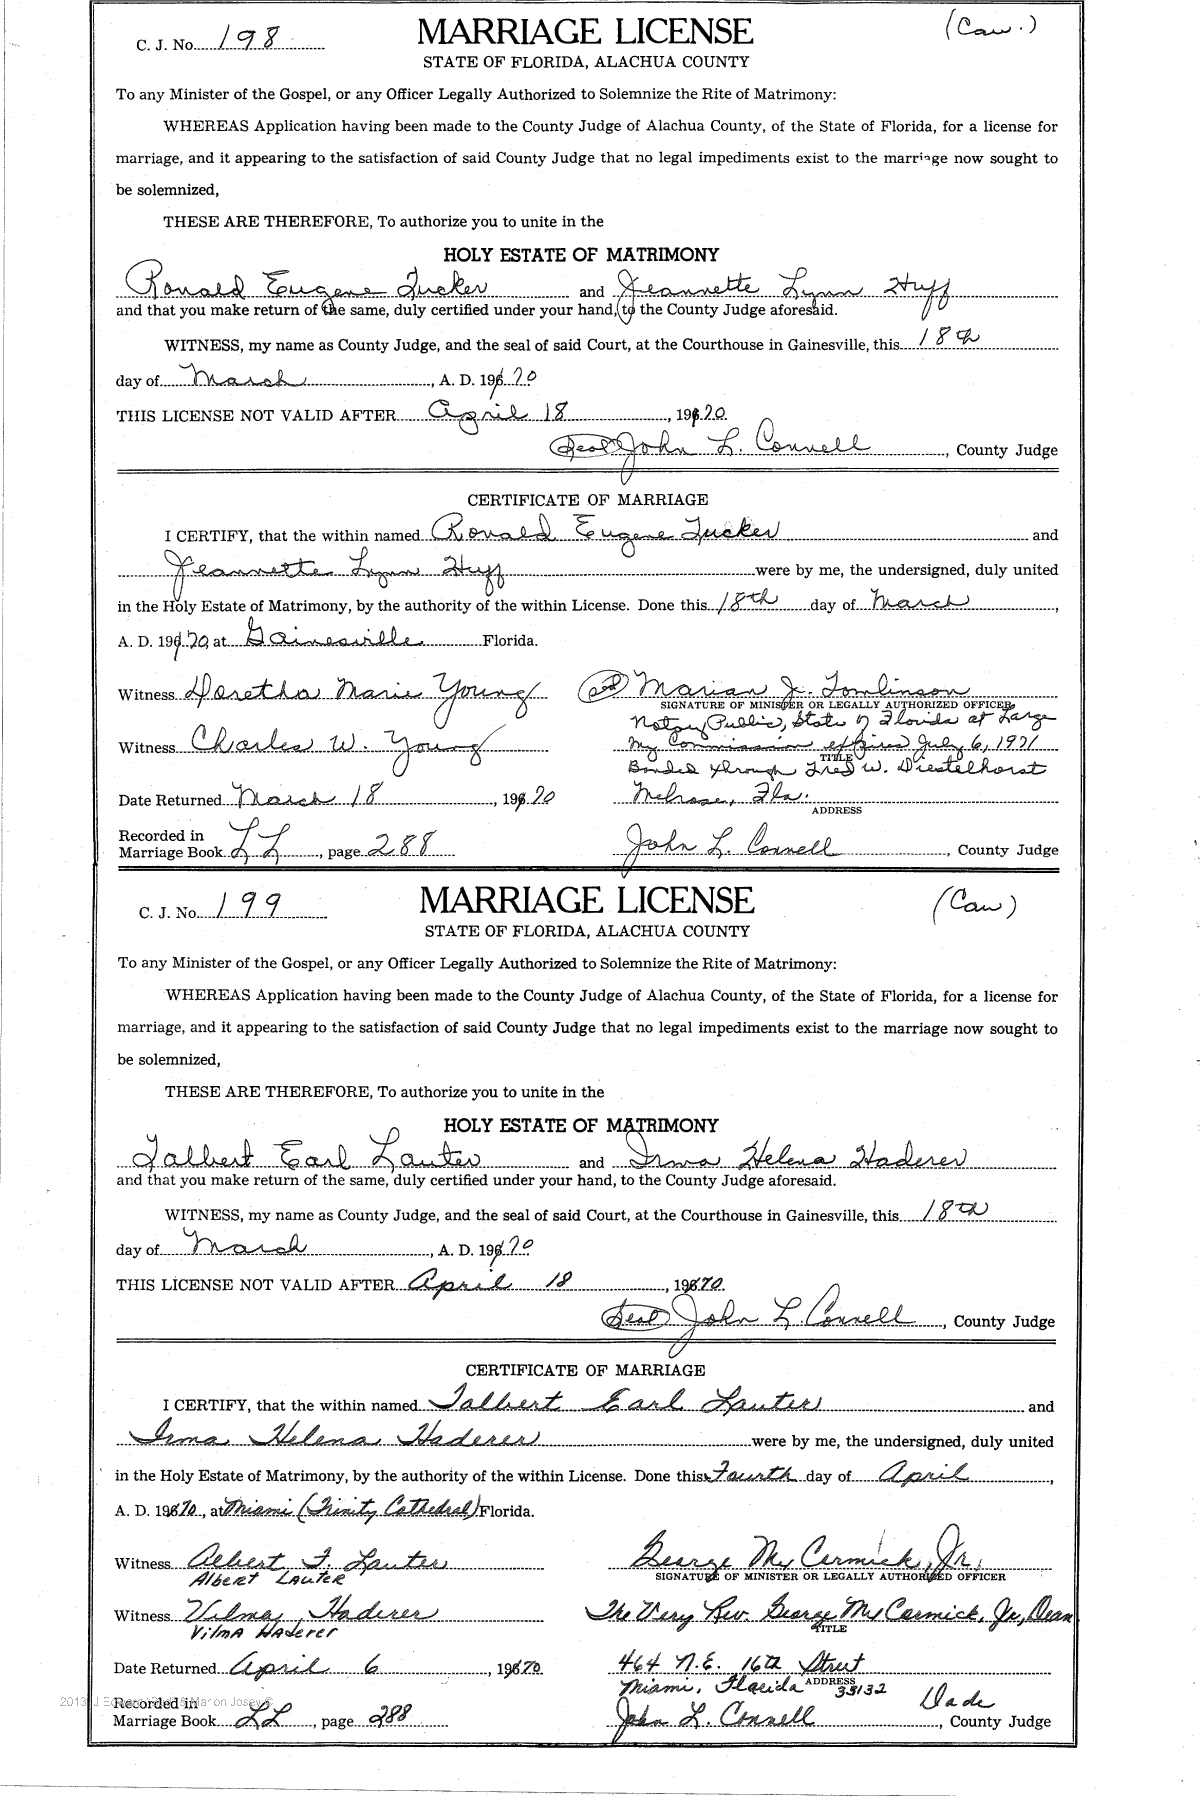 C. J. No. 198 MARRIAGE LICENSE (Caw.)
STATE OF FLORIDA, ALACHUA COUNTY
To any Minister of the Gospel, or any Officer Legally Authorized to Solemnize the Rite of Matrimony:
WHEREAS Application having been made to the County Judge of Alachua County, of the State of Florida, for a license for
marriage, and it appearing to the satisfaction of said County Judge that no legal impediments exist to the marriage now sought to
be solemnized,
THESE ARE THEREFORE, To authorize you to unite in the
HOLY ESTATE OF MATRIMONY
Ronald Eugene Tucker and Jeannette Lynn Huff
and that you make return of the same, duly certified under your hand, to the County Judge aforesaid.
WITNESS, my name as County Judge, and the seal of said Court, at the Courthouse in Gainesville, this 18th
day of March, A. D. 1970
THIS LICENSE NOT VALID AFTER April 18, 1970
(Seal) John L. Connell, County Judge
CERTIFICATE OF MARRIAGE
I CERTIFY, that the within named Ronald Eugene Tucker and
Jeannette Lynn Huff were by me, the undersigned, duly united
in the Holy Estate of Matrimony, by the authority of the within License. Done this 18th day of March,
A. D. 1970, at Gainesville Florida.
Witness Doretha Marie Young Marian J. Tomlinson
SIGNATURE OF MINISTER OR LEGALLY AUTHORIZED OFFICER
Notary Public, State of Florida at Large
Witness Charles W. Young My Commission expires July 6, 1971
TITLE
Bonded through Fred W. Diestelhorst
Date Returned March 18, 1970 Melrose, Fla.
ADDRESS
Recorded in
Marriage Book LL, page 288 John L. Connell, County Judge
C. J. No. 199 MARRIAGE LICENSE (Caw)
STATE OF FLORIDA, ALACHUA COUNTY
To any Minister of the Gospel, or any Officer Legally Authorized to Solemnize the Rite of Matrimony:
WHEREAS Application having been made to the County Judge of Alachua County, of the State of Florida, for a license for
marriage, and it appearing to the satisfaction of said County Judge that no legal impediments exist to the marriage now sought to
be solemnized,
THESE ARE THEREFORE, To authorize you to unite in the
HOLY ESTATE OF MATRIMONY
Talbert Earl Lauter and Irma Helena Haderer
and that you make return of the same, duly certified under your hand, to the County Judge aforesaid.
WITNESS, my name as County Judge, and the seal of said Court, at the Courthouse in Gainesville, this 18th
day of March, A. D. 1970
THIS LICENSE NOT VALID AFTER April 18, 1970
(Seal) John L. Connell, County Judge
CERTIFICATE OF MARRIAGE
I CERTIFY, that the within named Talbert Earl Lauter and
Irma Helena Haderer were by me, the undersigned, duly united
in the Holy Estate of Matrimony, by the authority of the within License. Done this Fourth day of April,
A. D. 1970, at Miami (Trinity Cathedral) Florida.
Witness Albert F. Lauter George McCormick, Jr.
ALBERT LAUTER SIGNATURE OF MINISTER OR LEGALLY AUTHORIZED OFFICER
Witness Vilma Haderer The Very Rev. George McCormick, Jr., Dean
VilmA HAderer TITLE
Date Returned April 6, 1970 464 N.E. 16th Street
Miami, Florida ADDRESS 33132
Recorded in Dade
Marriage Book LL, page 288 John L. Connell, County Judge